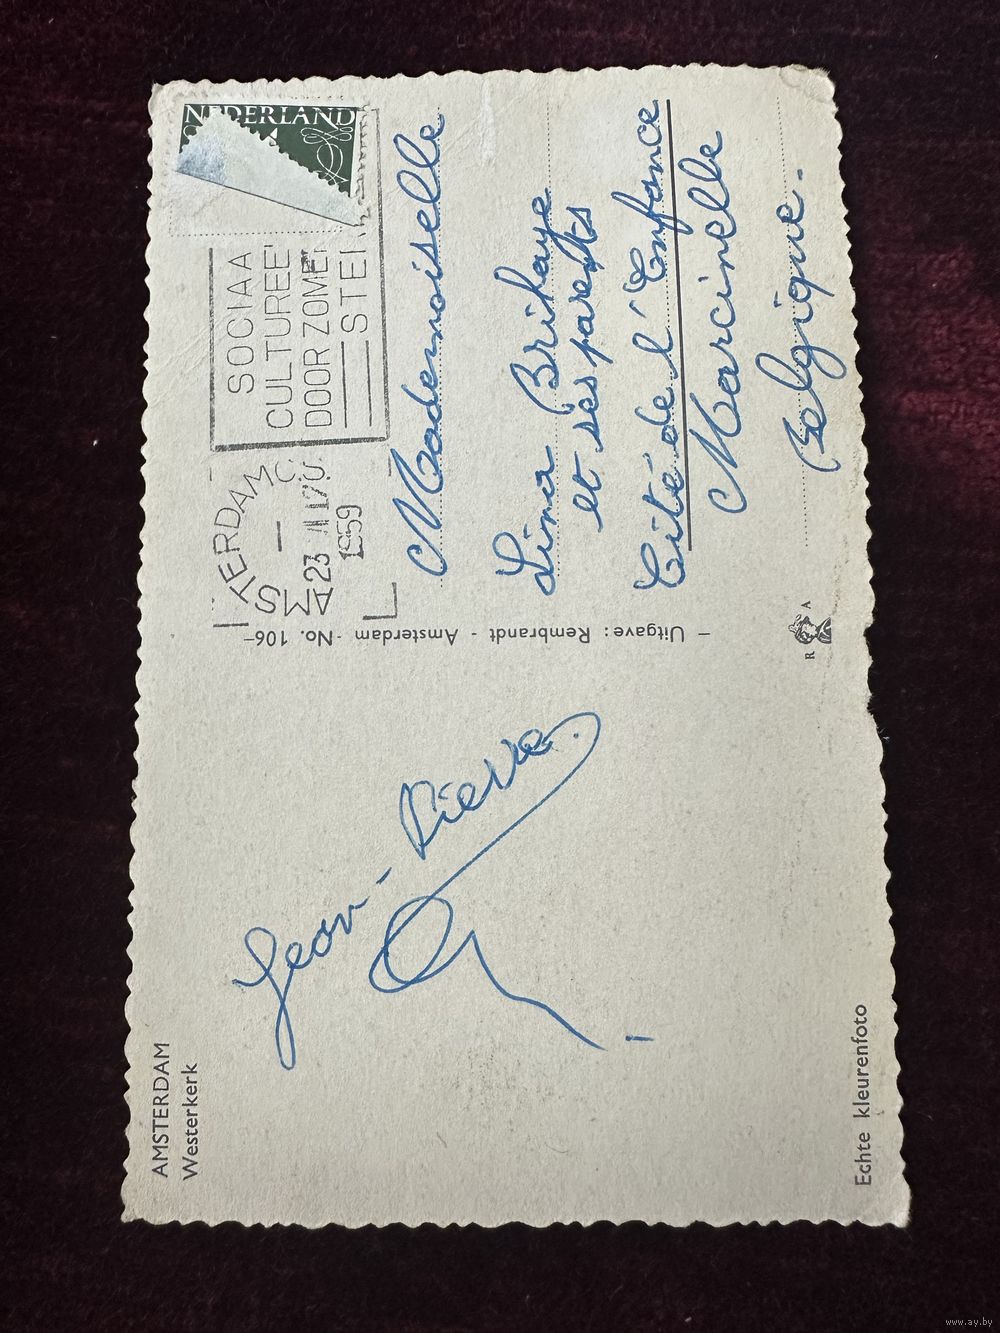 AMSTERDAM
Westerkerk
Jean-Pierre.
Echte kleurenfoto
— Uitgave: Rembrandt - Amsterdam - No. 106—
R A
NEDERLAND
AMSTERDAM
23
1959
SOCIAA
CULTUREE
DOOR ZOME
STE
Mademoiselle
Lina Brihaye
et ses parents
Cité de l'Enfance
Marcinelle
Belgique.
www.ay.by